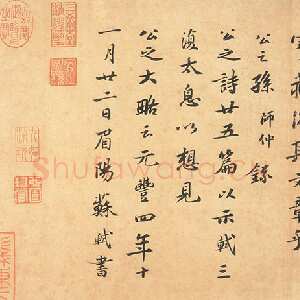 藏況其文章乎
公之孫師仲錄
公之詩廿五篇以示軾三
復太息以想見
公之大略云元豐四年十
一月廿二日眉陽蘇軾書